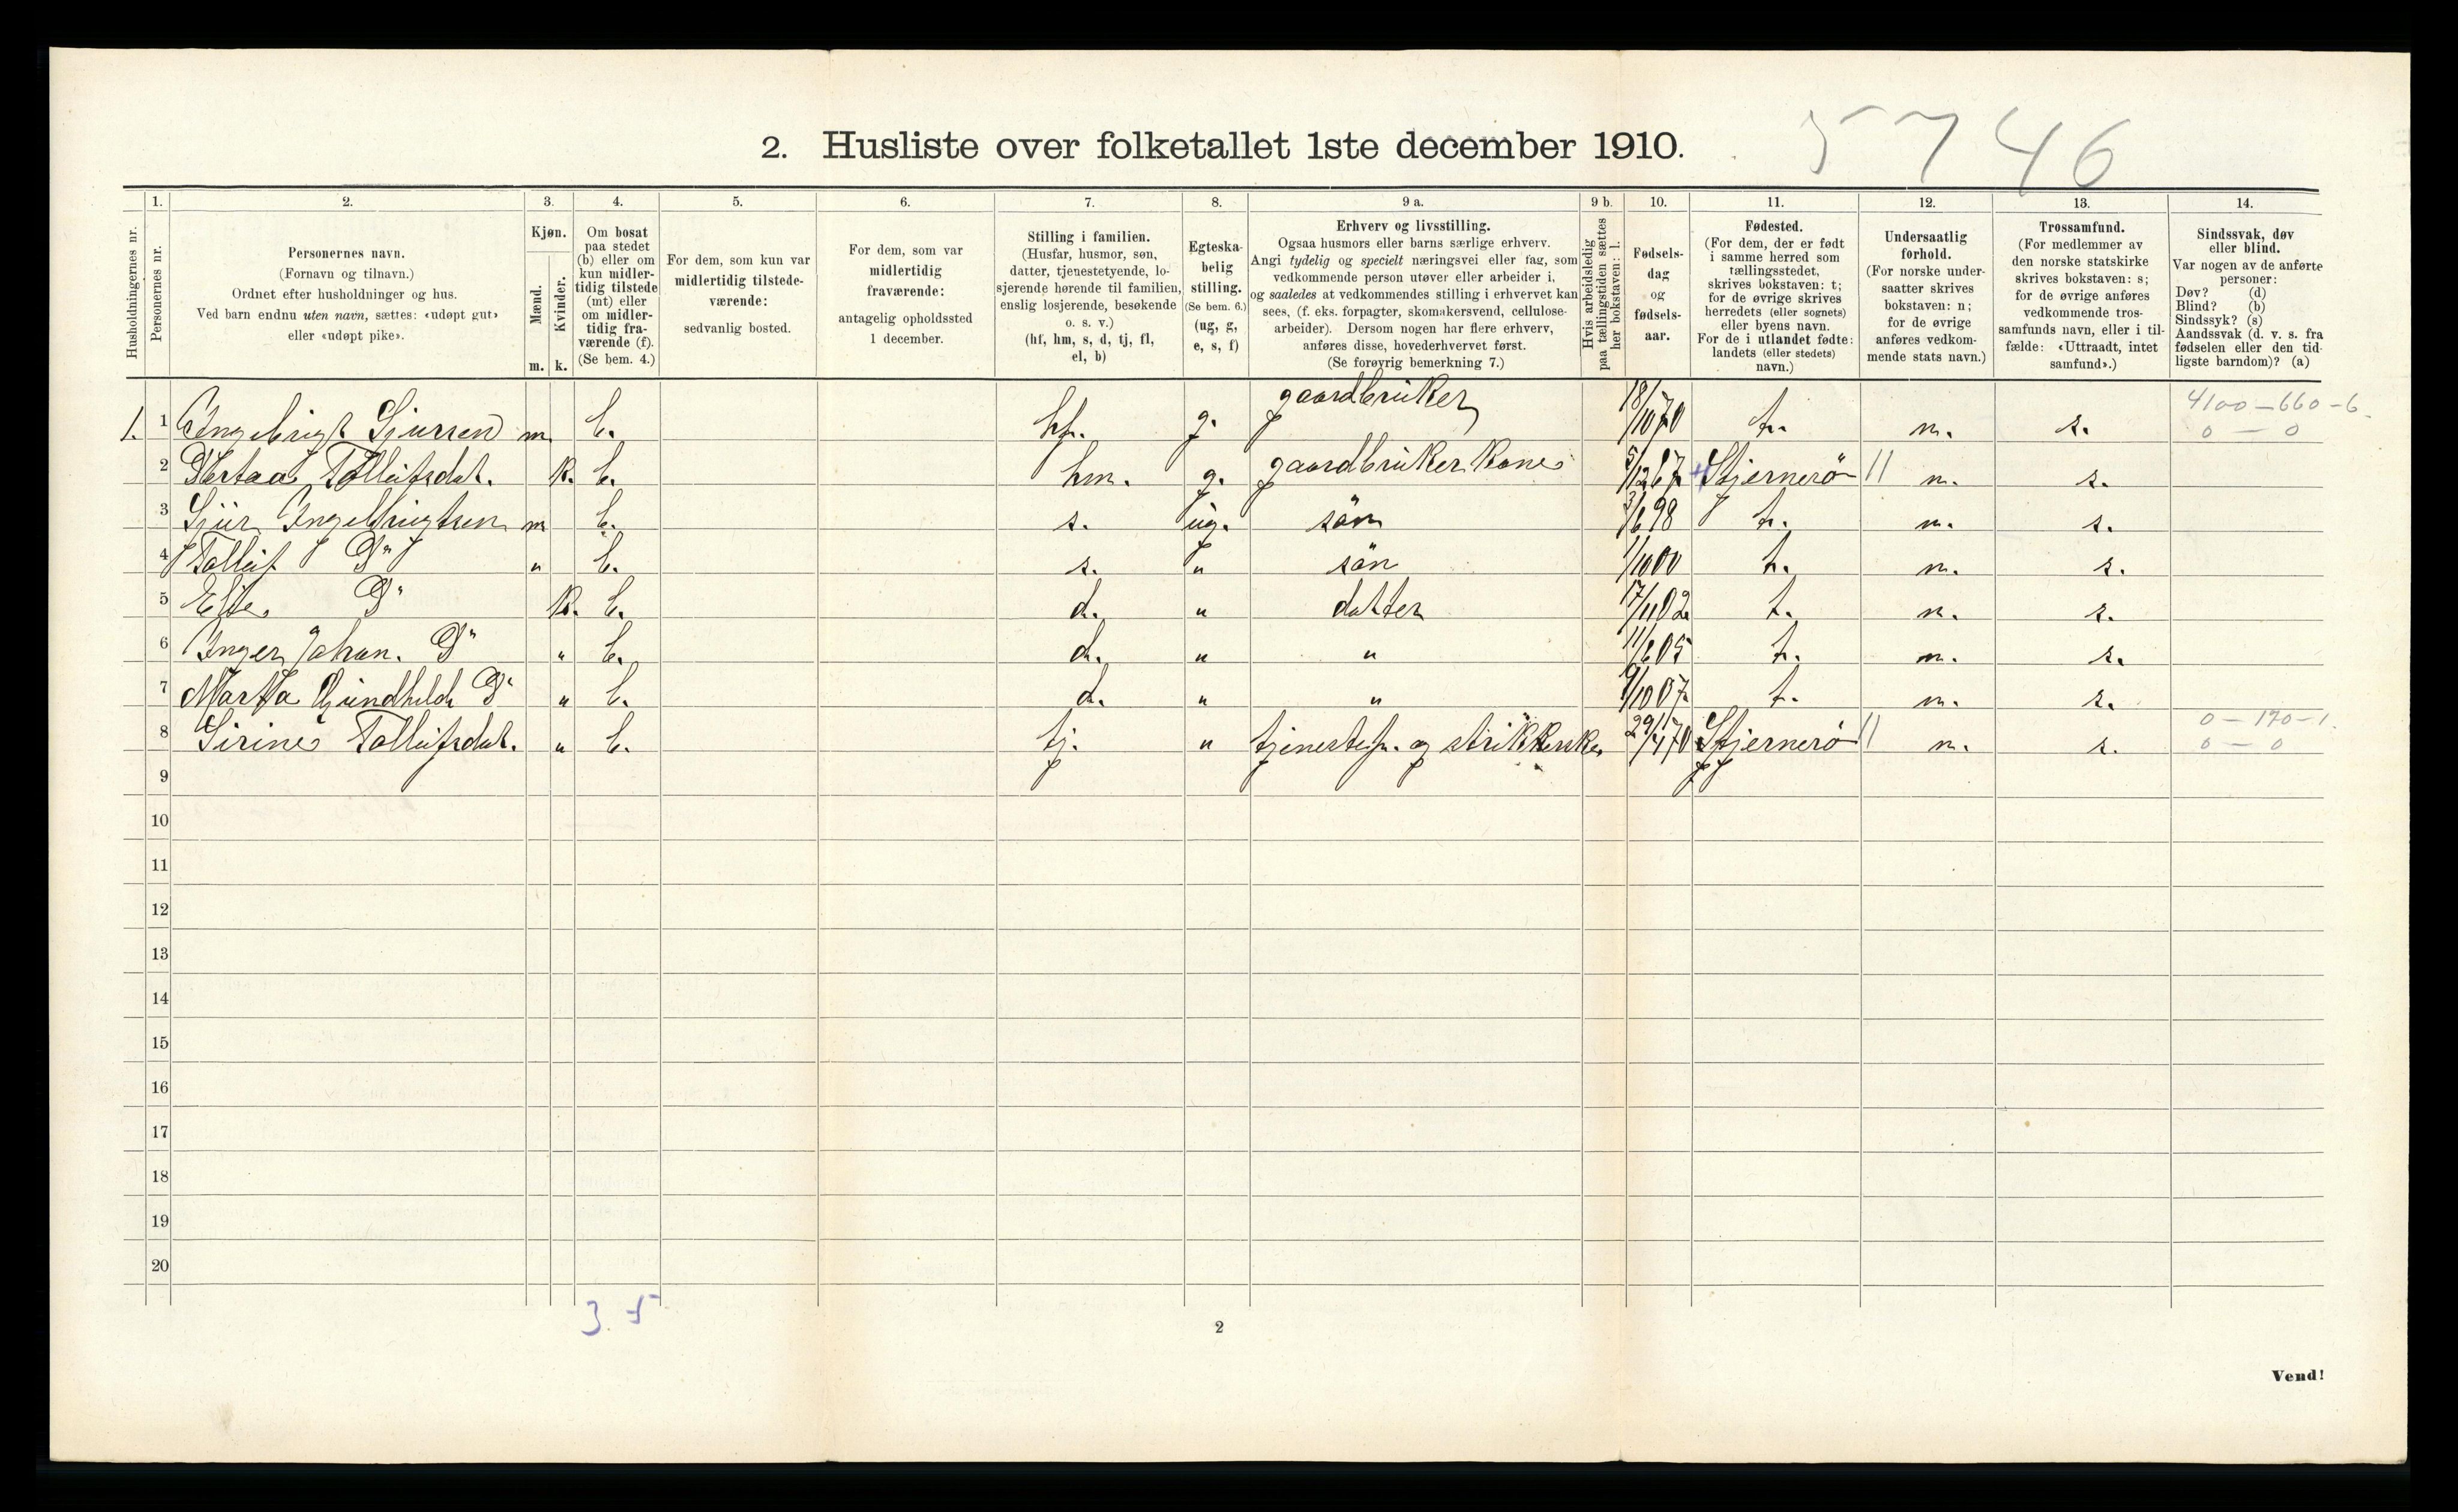 2. Husliste over folketallet 1ste december 1910.
5746
1. 2. 3. 4. 5. 6. 7. 8. 9 a. 9 b. 10. 11. 12. 13. 14.
Husholdningernes nr.
Personernes nr.
Personernes navn.
(Fornavn og tilnavn.)
Ordnet efter husholdninger og hus.
Ved barn endnu uten navn, sættes: «udøpt gut»
eller «udøpt pike».
Kjøn.
Mænd.
Kvinder.
m. k.
Om bosat
paa stedet
(b) eller om
kun midler-
tidig tilstede
(mt) eller
om midler-
tidig fra-
værende (f).
(Se bem. 4.)
For dem, som kun var
midlertidig tilstede-
værende:
sedvanlig bosted.
For dem, som var
midlertidig
fraværende:
antagelig opholdssted
1 december.
Stilling i familien.
(Husfar, husmor, søn,
datter, tjenestetyende, lo-
sjerende hørende til familien,
enslig losjerende, besøkende
o. s. v.)
(hf, hm, s, d, tj, fl,
el, b)
Egteska-
belig
stilling.
(Se bem. 6.)
(ug, g,
e, s, f)
Erhverv og livsstilling.
Ogsaa husmors eller barns særlige erhverv.
Angi tydelig og specielt næringsvei eller fag, som
vedkommende person utøver eller arbeider i,
og saaledes at vedkommendes stilling i erhvervet kan
sees, (f. eks. forpagter, skomakersvend, cellulose-
arbeider). Dersom nogen har flere erhverv,
anføres disse, hovederhvervet først.
(Se forøvrig bemerkning 7.)
Hvis arbeidsledig
paa tællingstiden sættes
her bokstaven: l.
Fødsels-
dag
og
fødsels-
aar.
Fødested.
(For dem, der er født
i samme herred som
tællingsstedet,
skrives bokstaven: t;
for de øvrige skrives
herredets (eller sognets)
eller byens navn.
For de i utlandet fødte:
landets (eller stedets)
navn.)
Undersaatlig
forhold.
(For norske under-
saatter skrives
bokstaven: n;
for de øvrige
anføres vedkom-
mende stats navn.)
Trossamfund.
(For medlemmer av
den norske statskirke
skrives bokstaven: s;
for de øvrige anføres
vedkommende tros-
samfunds navn, eller i til-
fælde: «Uttraadt, intet
samfund».)
Sindssvak, døv
eller blind.
Var nogen av de anførte
personer:
Døv? (d)
Blind? (b)
Sindssyk? (s)
Aandssvak (d. v. s. fra
fødselen eller den tid-
ligste barndom)? (a)
1. 1 Ingebrigt Sjursen m. b. hf. g. gaardbruker 18/10 70 t. n. s. 4100-660-6. 0-0
2 Tolleifsdat. k. b. hm. g. gaardbruker kone 5/12 67 Stjernerö n. s.
3 Sjur Ingebrigtsen m b. s. ug. sön 3/6 98 t. n. s.
4 Tolleif Do " b. s. " sön 1/10 00 t. n. s.
5 Do k. b. d. " datter 17/11 02 t. n. s.
6 Inger Johan. Do " b. d. " " 11/6 05 t. n. s.
7 Martha Gundhilda Do " b. d. " " 9/10 07 t. n. s.
8 Sirine Tolleifsdat. " b. tj. " tjenestep. og strikkerske 70 Stjernerö n. s. 0-170-1. 0-0
9
10
11
12
13
14
15
16
17
18
19
20
3. 5
2
Vend!